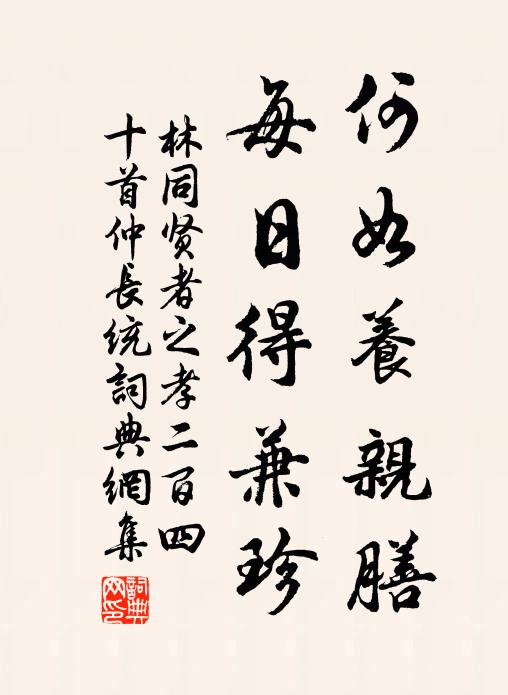 何如養親膳
每日得兼珍
林同贤者之孝二百四
十首仲長統詞典網集
詞典網印